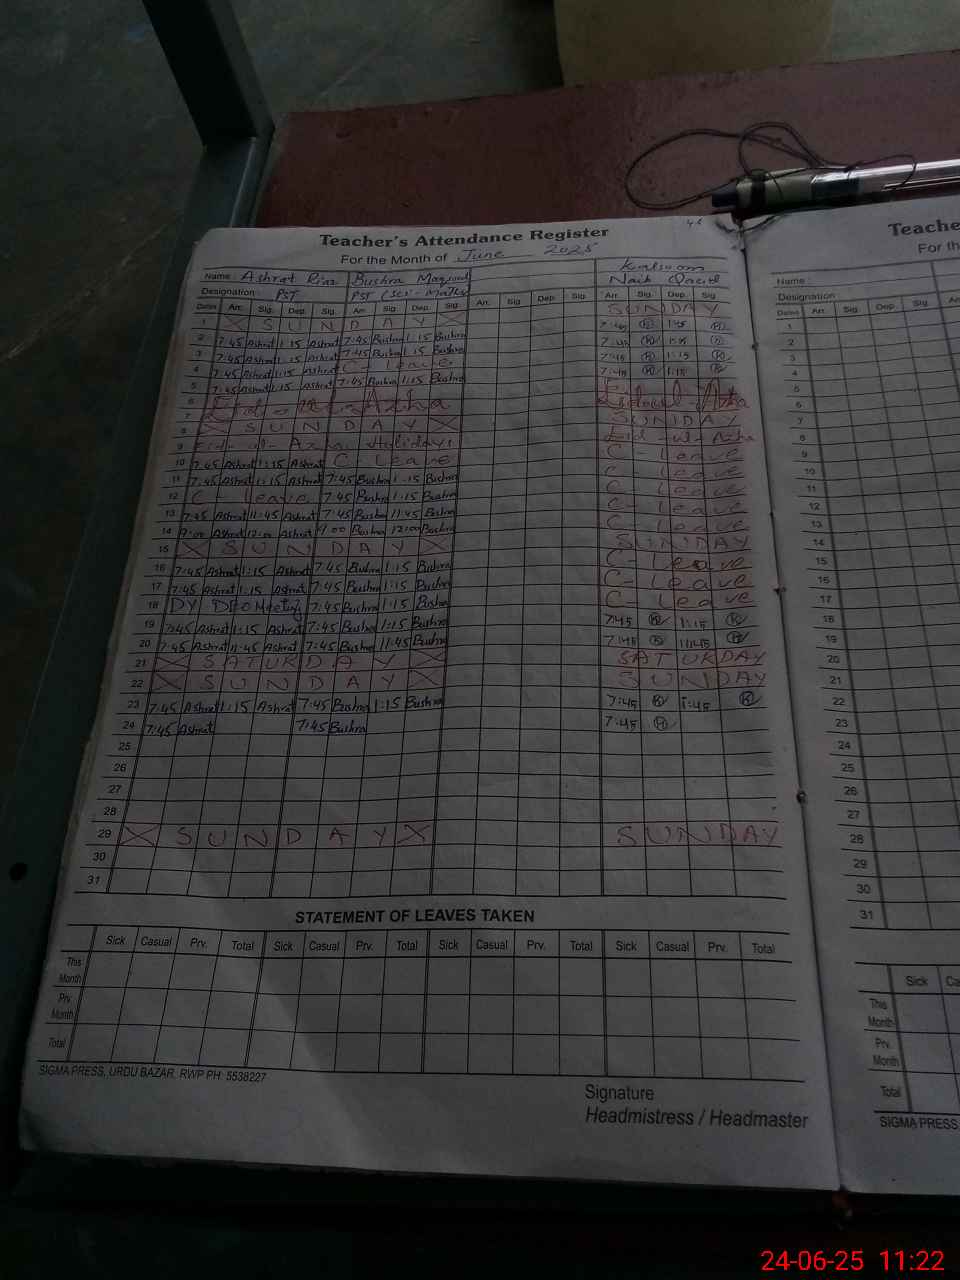 Teacher's Attendance Register
For the Month of June 2025
Name: Ashrat Riaz Bushra Maqsud Kalsoom
Designation: PST PST (Sci-Math) Naib Qasid
Dates Arr. Sig. Dep. Sig. Arr. Sig. Dep. Sig. Arr. Sig. Dep. Sig. Arr. Sig. Dep. Sig.
1 X SUNDAY X SUNDAY
2 7:45 Ashrat 1:15 Ashrat 7:45 Bushra 1:15 Bushra 7:45 K 1:45 K
3 7:45 Ashrat 1:15 Ashrat 7:45 Bushra 1:15 Bushra 7:45 K 1:15 K
4 7:45 Ashrat 1:15 Ashrat C - Leave 7:45 K 1:15 K
5 7:45 Ashrat 1:15 Ashrat 7:45 Bushra 1:15 Bushra 7:45 K 1:15 K
6
7 Eid-ul-Azha Eid-ul-Azha
8 X SUNDAY X SUNDAY
9 Eid-ul-Azha Holidays Eid-ul-Azha
10 7:45 Ashrat 1:15 Ashrat C - Leave C - Leave
11 7:45 Ashrat 1:15 Ashrat 7:45 Bushra 1:15 Bushra C - Leave
12 C - Leave 7:45 Bushra 1:15 Bushra C - Leave
13 7:45 Ashrat 11:45 Ashrat 7:45 Bushra 11:45 Bushra C - Leave
14 9:00 Ashrat 12:00 Ashrat 9:00 Bushra 12:00 Bushra C - Leave
15 X SUNDAY X SUNDAY
16 7:45 Ashrat 1:15 Ashrat 7:45 Bushra 1:15 Bushra C - Leave
17 7:45 Ashrat 1:15 Ashrat 7:45 Bushra 1:15 Bushra C - Leave
18 DY DEO Meeting 7:45 Bushra 1:15 Bushra C - Leave
19 7:45 Ashrat 1:15 Ashrat 7:45 Bushra 1:15 Bushra 7:45 K 1:15 K
20 7:45 Ashrat 11:45 Ashrat 7:45 Bushra 11:45 Bushra 7:45 K 11:45 K
21 X SATURDAY X SATURDAY
22 X SUNDAY X SUNDAY
23 7:45 Ashrat 1:15 Ashrat 7:45 Bushra 1:15 Bushra 7:45 K 1:45 K
24 7:45 Ashrat 7:45 Bushra 7:45 K
25
26
27
28
29 X SUNDAY X SUNDAY
30
31
STATEMENT OF LEAVES TAKEN
Sick Casual Prv. Total Sick Casual Prv. Total Sick Casual Prv. Total Sick Casual Prv. Total
This Month
Prv. Month
Total
SIGMA PRESS, URDU BAZAR, RWP PH: 5538227
Signature
Headmistress / Headmaster
Teache
For th
Name:
Designation
Dates Arr. Sig. Dep. Sig.
1
2
3
4
5
6
7
8
9
10
11
12
13
14
15
16
17
18
19
20
21
22
23
24
25
26
27
28
29
30
31
Sick Ca
This Month
Prv. Month
Total
SIGMA PRESS
24-06-25 11:22